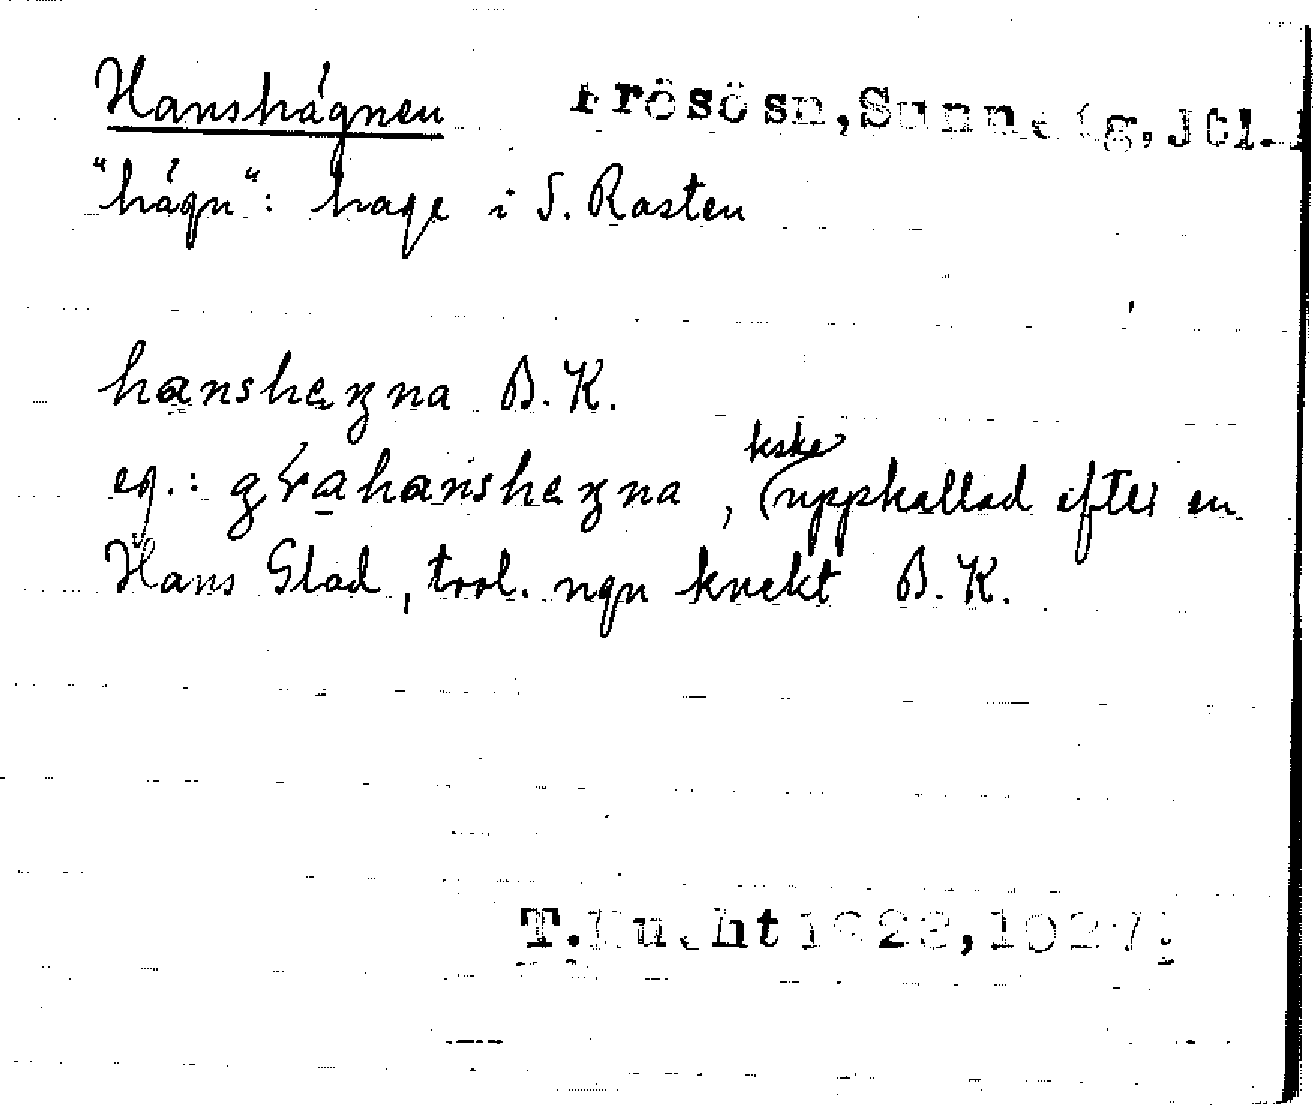 Hanshágnen Frösö sn, Sunne tg, Jtl.
"hágn": hage i S. Rasten
hanshaʒna B.K.
eg.: gråhanshaʒna, kske (uppkallad efter en
Hans Glad, trol. ngn knekt B.K.
1928, 1927.